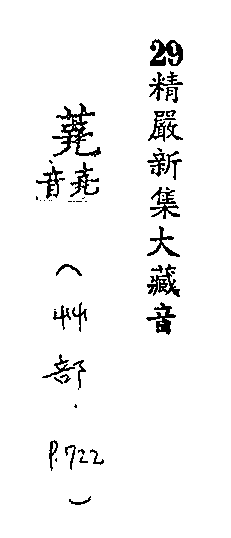 29精嚴新集大藏音
蕘
音尭
(艸部.P.722)